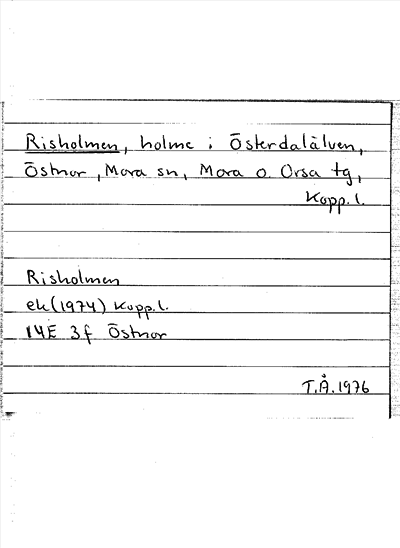 Risholmen, holme i Österdalälven,
Östnor, Mora sn, Mora o. Orsa tg,
Kopp.l.
Risholmen
ek(1974) Kopp.l.
14E 3f Östnor
T.Å.1976